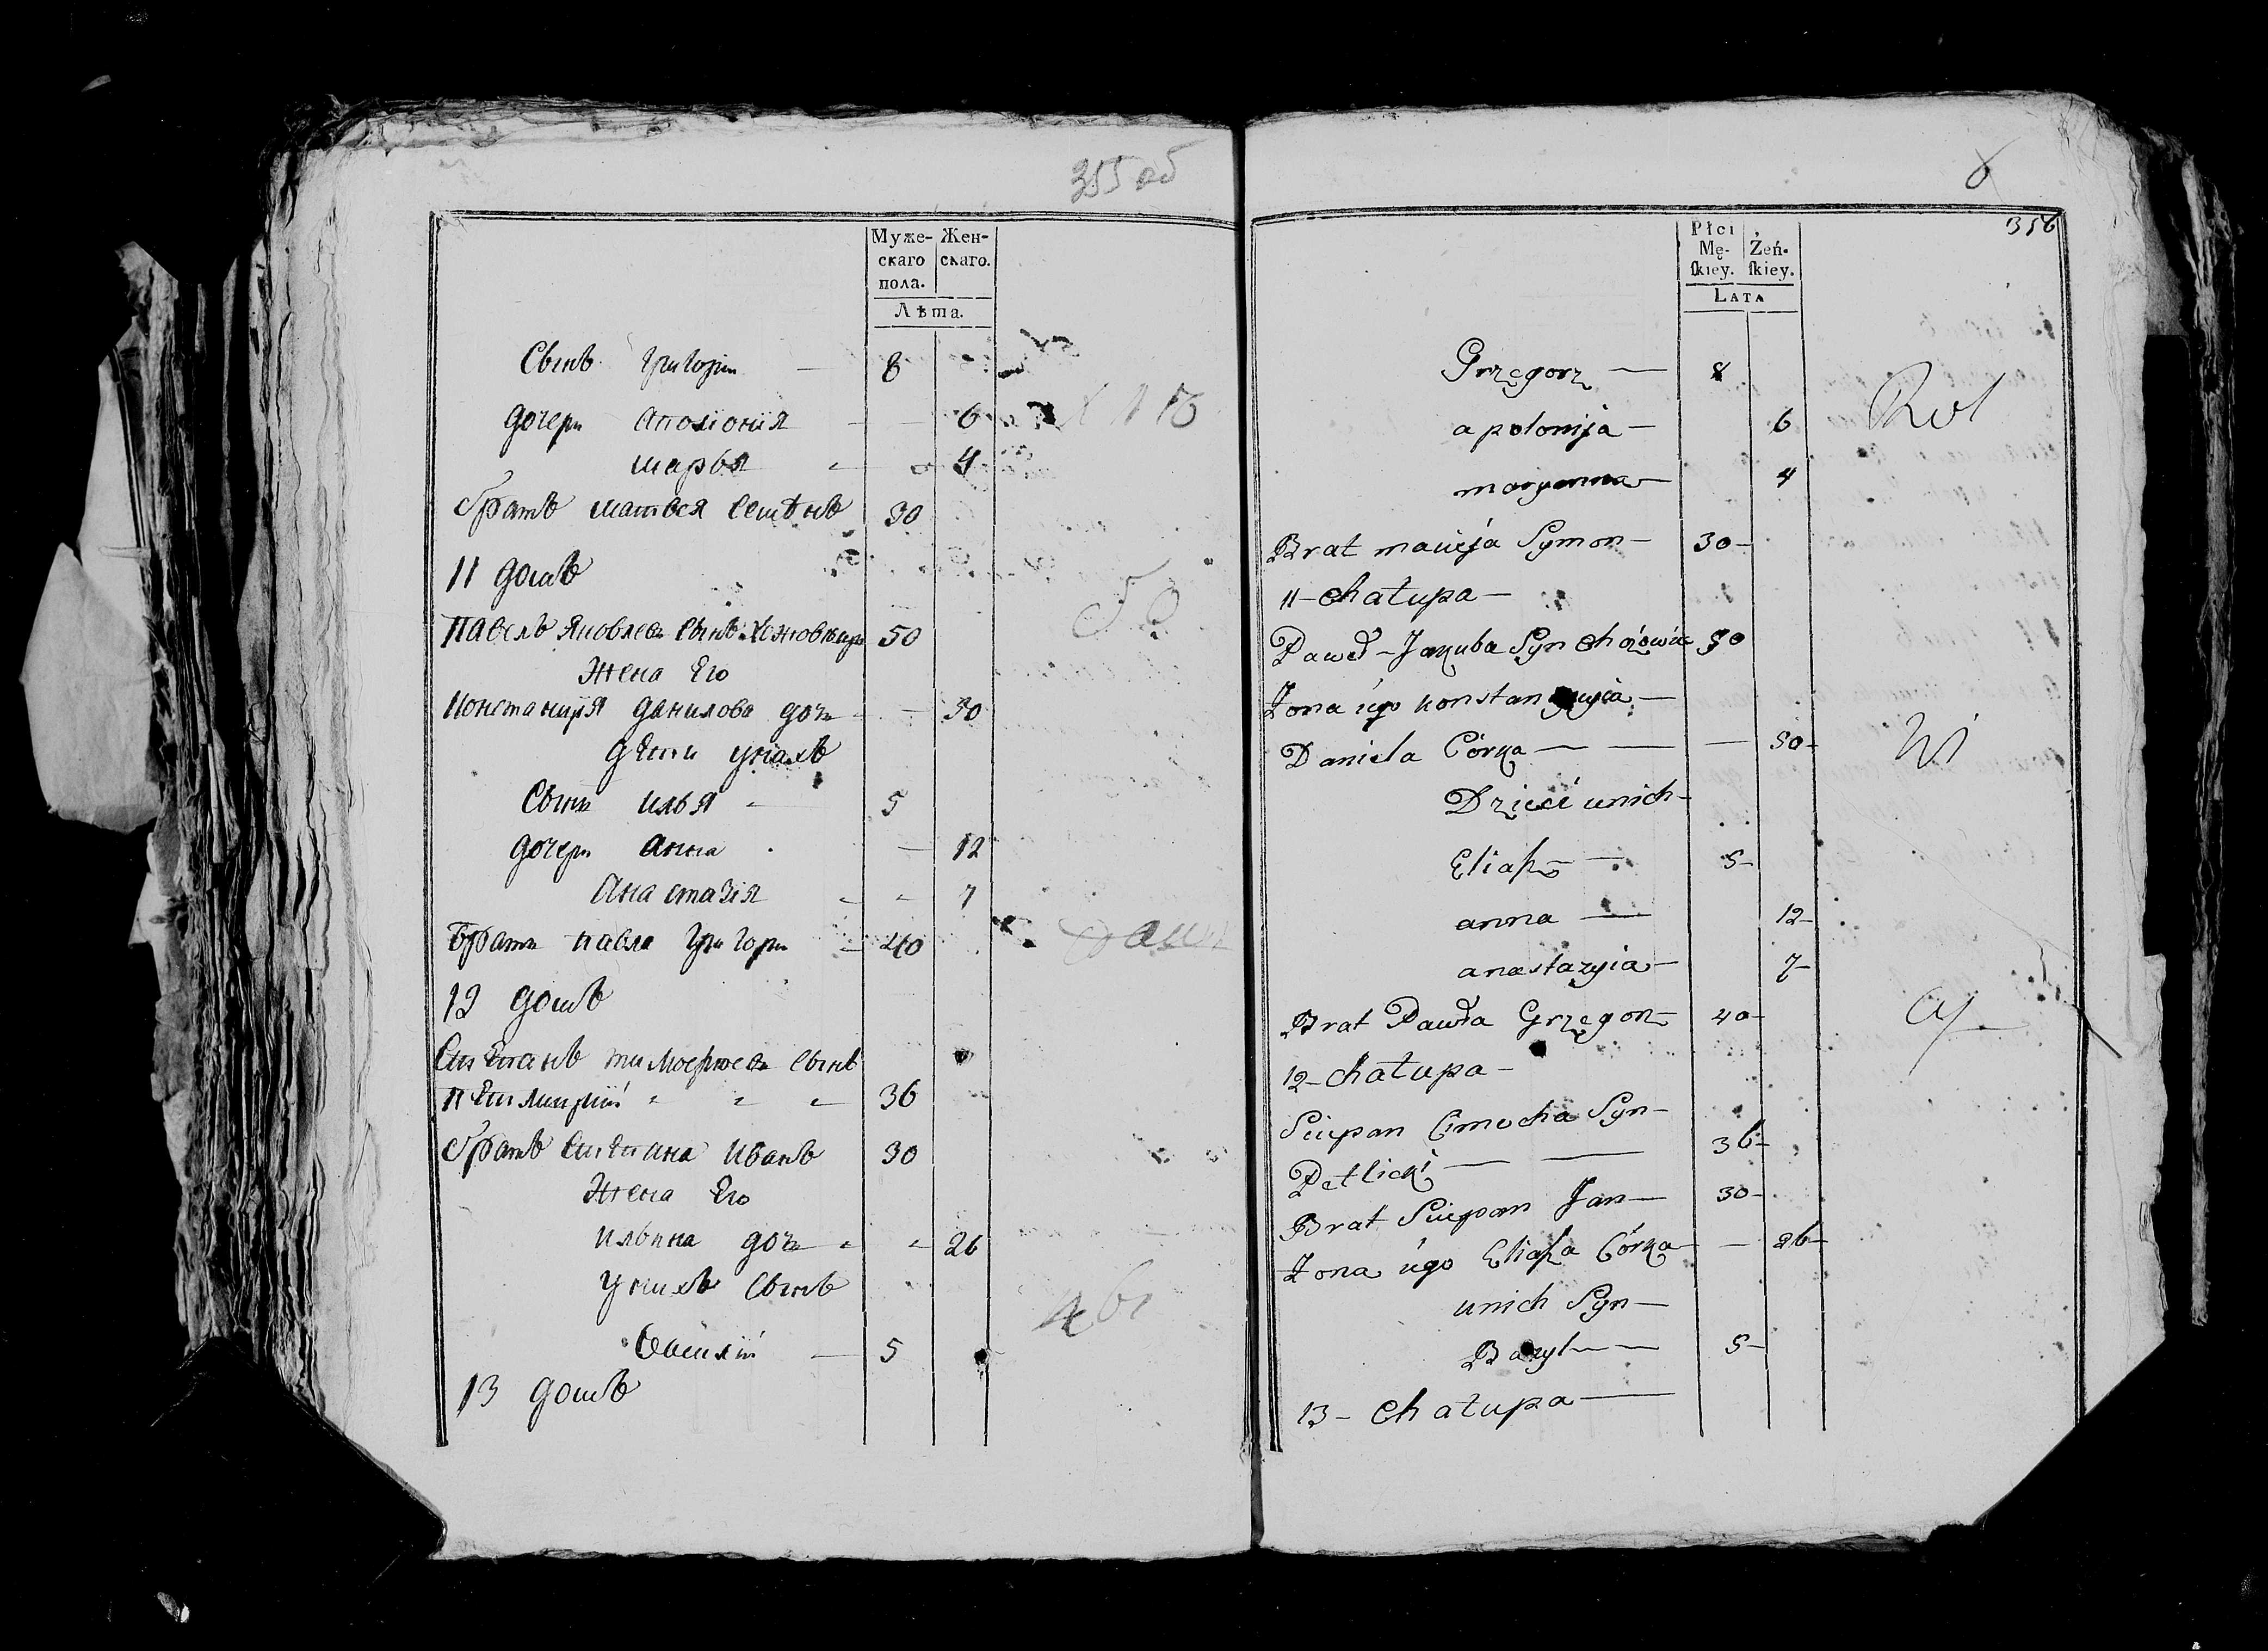 355 об
Муже-
скаго
пола.
Жен-
скаго.
Лѣта.
Сынъ Григори — 8
дочери Аполіонія — 6
Марья 4
братъ Матвея Семѣнъ 30
11 домъ
Павелъ Яковлевъ сынъ 50
Жена Его
Констанція Данилова дочь — 50
дѣти у нихъ
Сынъ Илья - 5
дочери Анна — 12
Анастазія 7
братъ Павла Григори — 40
12 домъ
Степанъ Тимофеевъ сынъ
Петлицкій 36
братъ Степана Иванъ 30
Жена Его
Ильина дочь 26
у нихъ сынъ
Василій — 5
13 домъ
6
356
Płci
Mę-
ſkiey.
Żeń-
ſkiey.
LATA
Grzegorz — 8
apolonija — 6
maryanna — 4
Brat macieja Symon — 30 —
11 — Chałupa —
Paweł — Jakuba Syn 50
Żona iego konstancyia —
Daniela Córka — — — 50 —
Dzieci unich —
Eliaſz — 5 —
anna — 12 —
anastazyia — 7 —
Brat Pawła Grzegorz 40 —
12 — Chałupa —
Sciepan Cimocha Syn —
Petlicki — — 36 —
Brat Sciepan Jan — 30 —
Żona iego Eliaſza Córka — — 26 —
unich Syn —
Bazyl — — 5 —
13 — Chałupa —